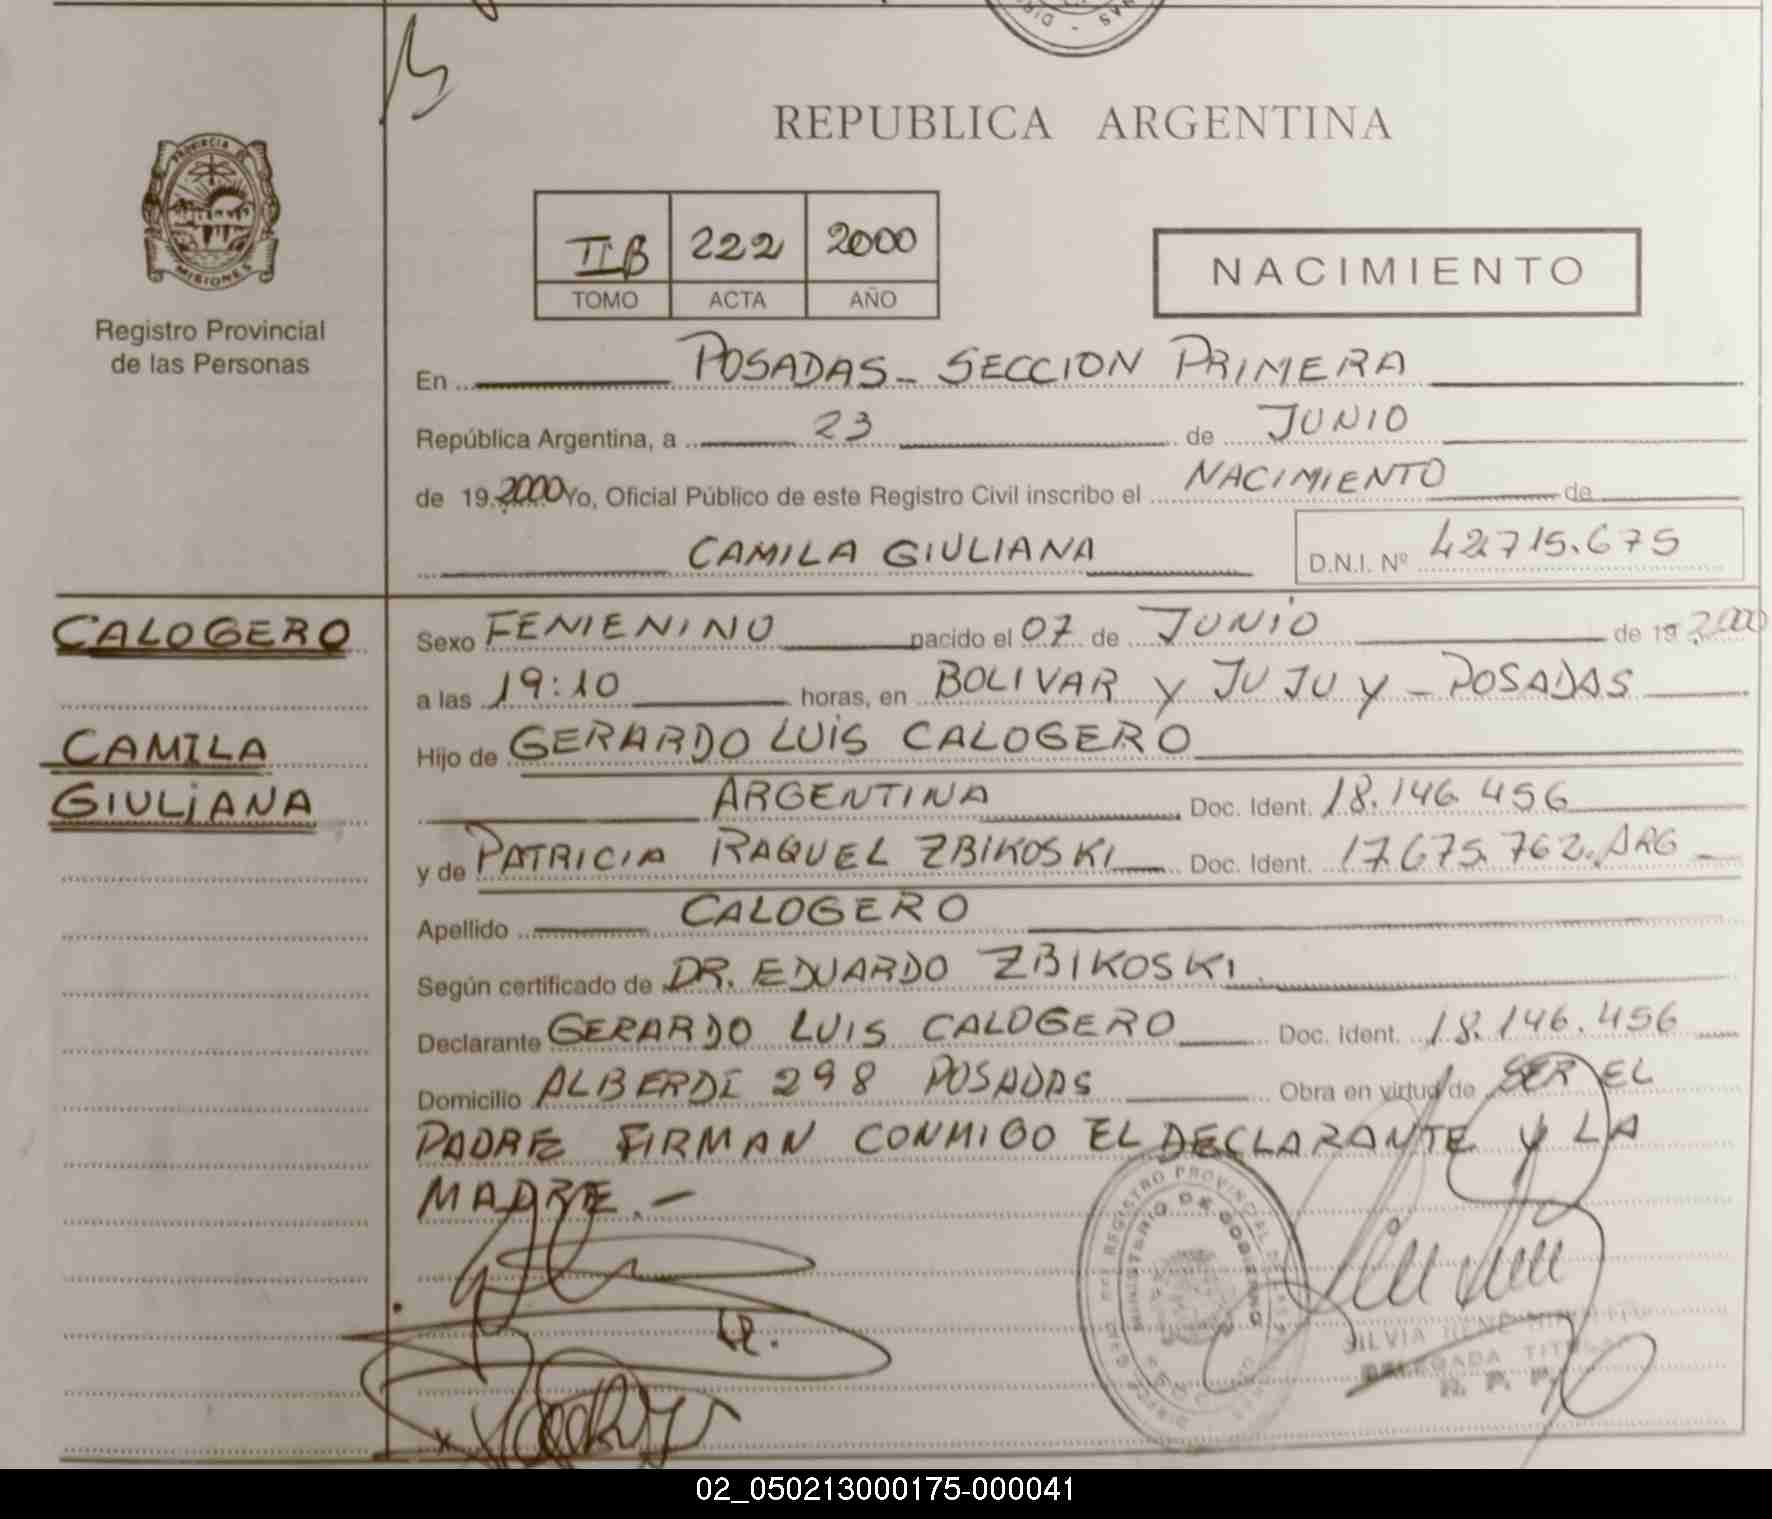 REPUBLICA ARGENTINA
PROVINCIA DE
MISIONES
Registro Provincial
de las Personas
II B 222 2000
TOMO ACTA AÑO
NACIMIENTO
En POSADAS - SECCION PRIMERA
República Argentina, a 23 de JUNIO
de 19 2000 Yo, Oficial Público de este Registro Civil inscribo el NACIMIENTO de
CAMILA GIULIANA D.N.I. Nº 42715.675
CALOGERO
CAMILA
GIULIANA
Sexo FEMENINO nacido el 07 de JUNIO de 19 2000
a las 19:10 horas, en BOLIVAR Y JUJUY - POSADAS
Hijo de GERARDO LUIS CALOGERO
ARGENTINA Doc. Ident. 18.146 456
y de PATRICIA RAQUEL ZBIKOSKI Doc. Ident. 17.675.762. ARG -
Apellido CALOGERO
Según certificado de DR. EDUARDO ZBIKOSKI.
Declarante GERARDO LUIS CALOGERO Doc. Ident. 18.146.456
Domicilio ALBERDI 298 POSADAS Obra en virtud de SER EL
PADRE FIRMAN CONMIGO EL DECLARANTE Y LA
MADRE. -
REGISTRO PROVINCIAL DE LAS
MINISTERIO DE GOBIERNO
SILVIA RENE
DELEGADA TITULAR
R. P. P.
02_050213000175-000041